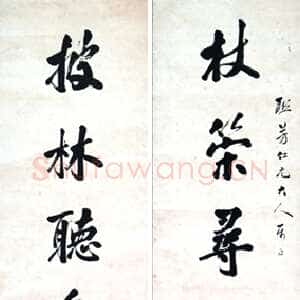 芳仁兄大人屬
杖策尋
披林聽